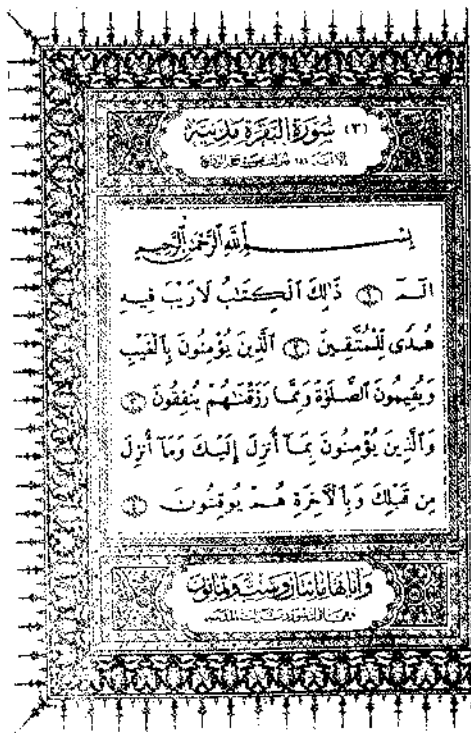 سُورَةُ البَقَرَةِ مَدَنِيَّة
بِسْمِ اللَّهِ الرَّحْمَٰنِ الرَّحِيمِ
الٓمٓ ۝١ ذَٰلِكَ ٱلْكِتَٰبُ لَا رَيْبَ فِيهِ
هُدًى لِّلْمُتَّقِينَ ۝٢ ٱلَّذِينَ يُؤْمِنُونَ بِٱلْغَيْبِ
وَيُقِيمُونَ ٱلصَّلَوٰةَ وَمِمَّا رَزَقْنَٰهُمْ يُنفِقُونَ ۝٣
وَٱلَّذِينَ يُؤْمِنُونَ بِمَآ أُنزِلَ إِلَيْكَ وَمَآ أُنزِلَ
مِن قَبْلِكَ وَبِٱلْأَخِرَةِ هُمْ يُوقِنُونَ ۝٤
وآياتها مائتان وست وثمانون